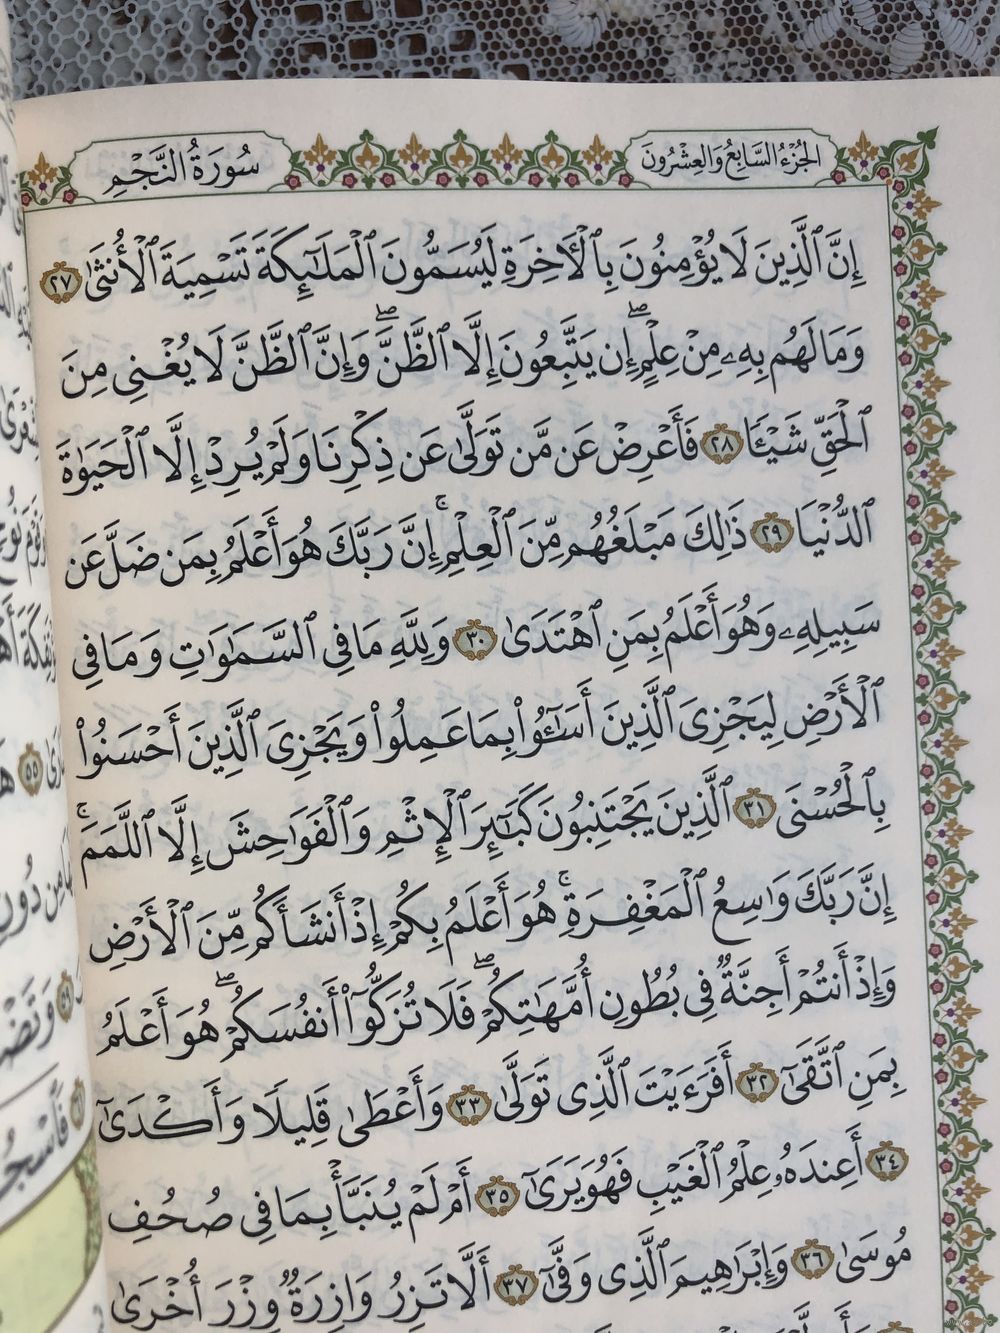 الجُزْءُ السَّابِعُ وَالعِشْرُونَ
سُورَةُ النَّجْمِ
إِنَّ ٱلَّذِينَ لَا يُؤْمِنُونَ بِٱلْأَخِرَةِ لَيُسَمُّونَ ٱلْمَلَٰٓئِكَةَ تَسْمِيَةَ ٱلْأُنثَىٰ ٢٧
وَمَا لَهُم بِهِۦ مِنْ عِلْمٍ ۖ إِن يَتَّبِعُونَ إِلَّا ٱلظَّنَّ ۖ وَإِنَّ ٱلظَّنَّ لَا يُغْنِى مِنَ
ٱلْحَقِّ شَيْـًٔا ٢٨ فَأَعْرِضْ عَن مَّن تَوَلَّىٰ عَن ذِكْرِنَا وَلَمْ يُرِدْ إِلَّا ٱلْحَيَوٰةَ
ٱلدُّنْيَا ٢٩ ذَٰلِكَ مَبْلَغُهُم مِّنَ ٱلْعِلْمِ ۚ إِنَّ رَبَّكَ هُوَ أَعْلَمُ بِمَن ضَلَّ عَن
سَبِيلِهِۦ وَهُوَ أَعْلَمُ بِمَنِ ٱهْتَدَىٰ ٣٠ وَلِلَّهِ مَا فِى ٱلسَّمَٰوَٰتِ وَمَا فِى
ٱلْأَرْضِ لِيَجْزِىَ ٱلَّذِينَ أَسَٰٓـُٔوا۟ بِمَا عَمِلُوا۟ وَيَجْزِىَ ٱلَّذِينَ أَحْسَنُوا۟
بِٱلْحُسْنَى ٣١ ٱلَّذِينَ يَجْتَنِبُونَ كَبَٰٓئِرَ ٱلْإِثْمِ وَٱلْفَوَٰحِشَ إِلَّا ٱللَّمَمَ ۚ
إِنَّ رَبَّكَ وَٰسِعُ ٱلْمَغْفِرَةِ ۚ هُوَ أَعْلَمُ بِكُمْ إِذْ أَنشَأَكُم مِّنَ ٱلْأَرْضِ
وَإِذْ أَنتُمْ أَجِنَّةٌ فِى بُطُونِ أُمَّهَٰتِكُمْ ۖ فَلَا تُزَكُّوٓا۟ أَنفُسَكُمْ ۖ هُوَ أَعْلَمُ
بِمَنِ ٱتَّقَىٰٓ ٣٢ أَفَرَءَيْتَ ٱلَّذِى تَوَلَّىٰ ٣٣ وَأَعْطَىٰ قَلِيلًا وَأَكْدَىٰٓ
٣٤ أَعِندَهُۥ عِلْمُ ٱلْغَيْبِ فَهُوَ يَرَىٰٓ ٣٥ أَمْ لَمْ يُنَبَّأْ بِمَا فِى صُحُفِ
مُوسَىٰ ٣٦ وَإِبْرَٰهِيمَ ٱلَّذِى وَفَّىٰٓ ٣٧ أَلَّا تَزِرُ وَازِرَةٌ وِزْرَ أُخْرَىٰ